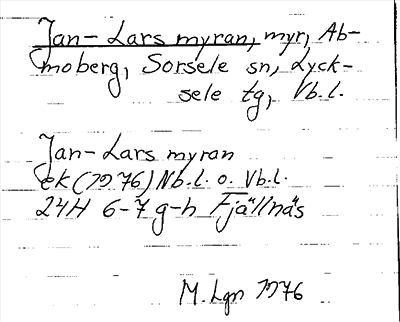 Jan-Lars myran, myr, Ab-
moberg, Sorsele sn, Lyck-
sele tg, Vb.l.
Jan-Lars myran
ek (1976) Nb.l. o. Vb.l.
24H 6-7 g-h Fjällnäs
M. Lgn 1976